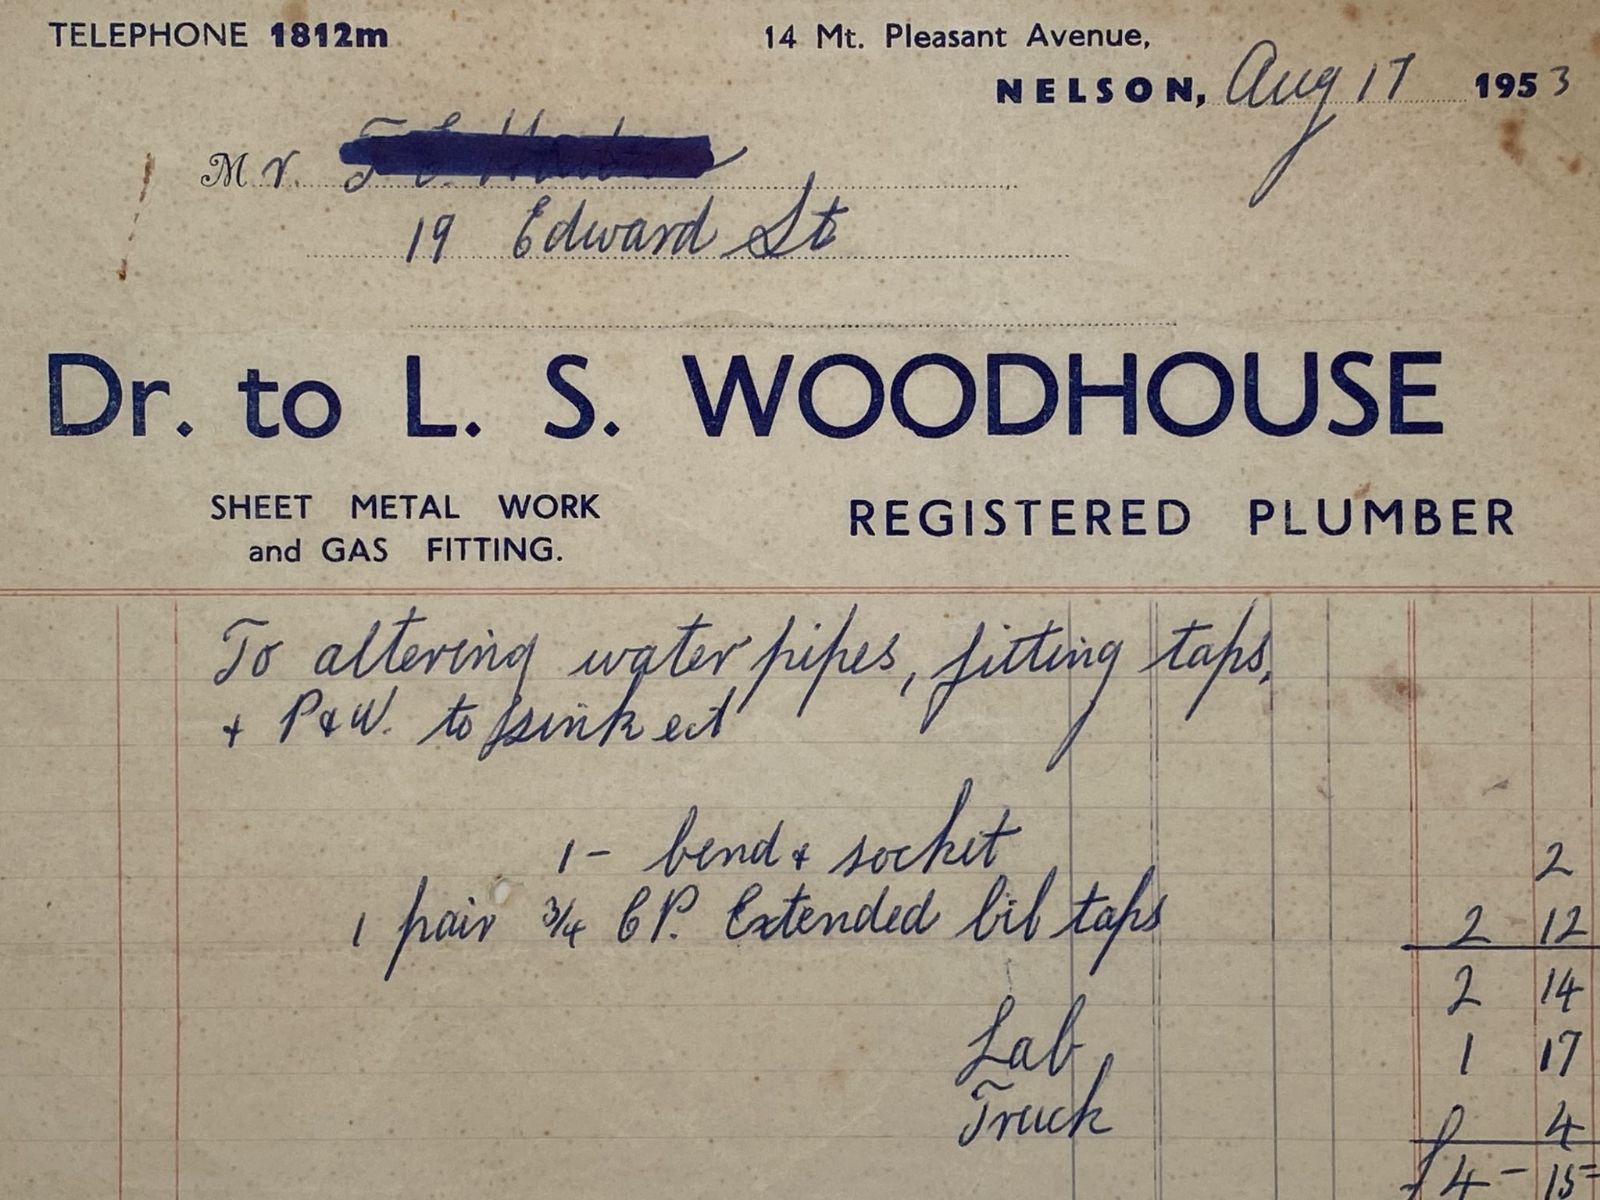 TELEPHONE 1812m
14 Mt. Pleasant Avenue,
NELSON, Aug 17 1953
Mr.
19 Edward St
Dr. to L. S. WOODHOUSE
SHEET METAL WORK
and GAS FITTING.
REGISTERED PLUMBER
To altering water pipes, fitting taps,
+ P&W. to sink ect
1 - bend + socket 2
1 pair 3/4 CP. Extended bib taps 2 12
2 14
Lab 1 17
Truck 4
£4 - 15 =